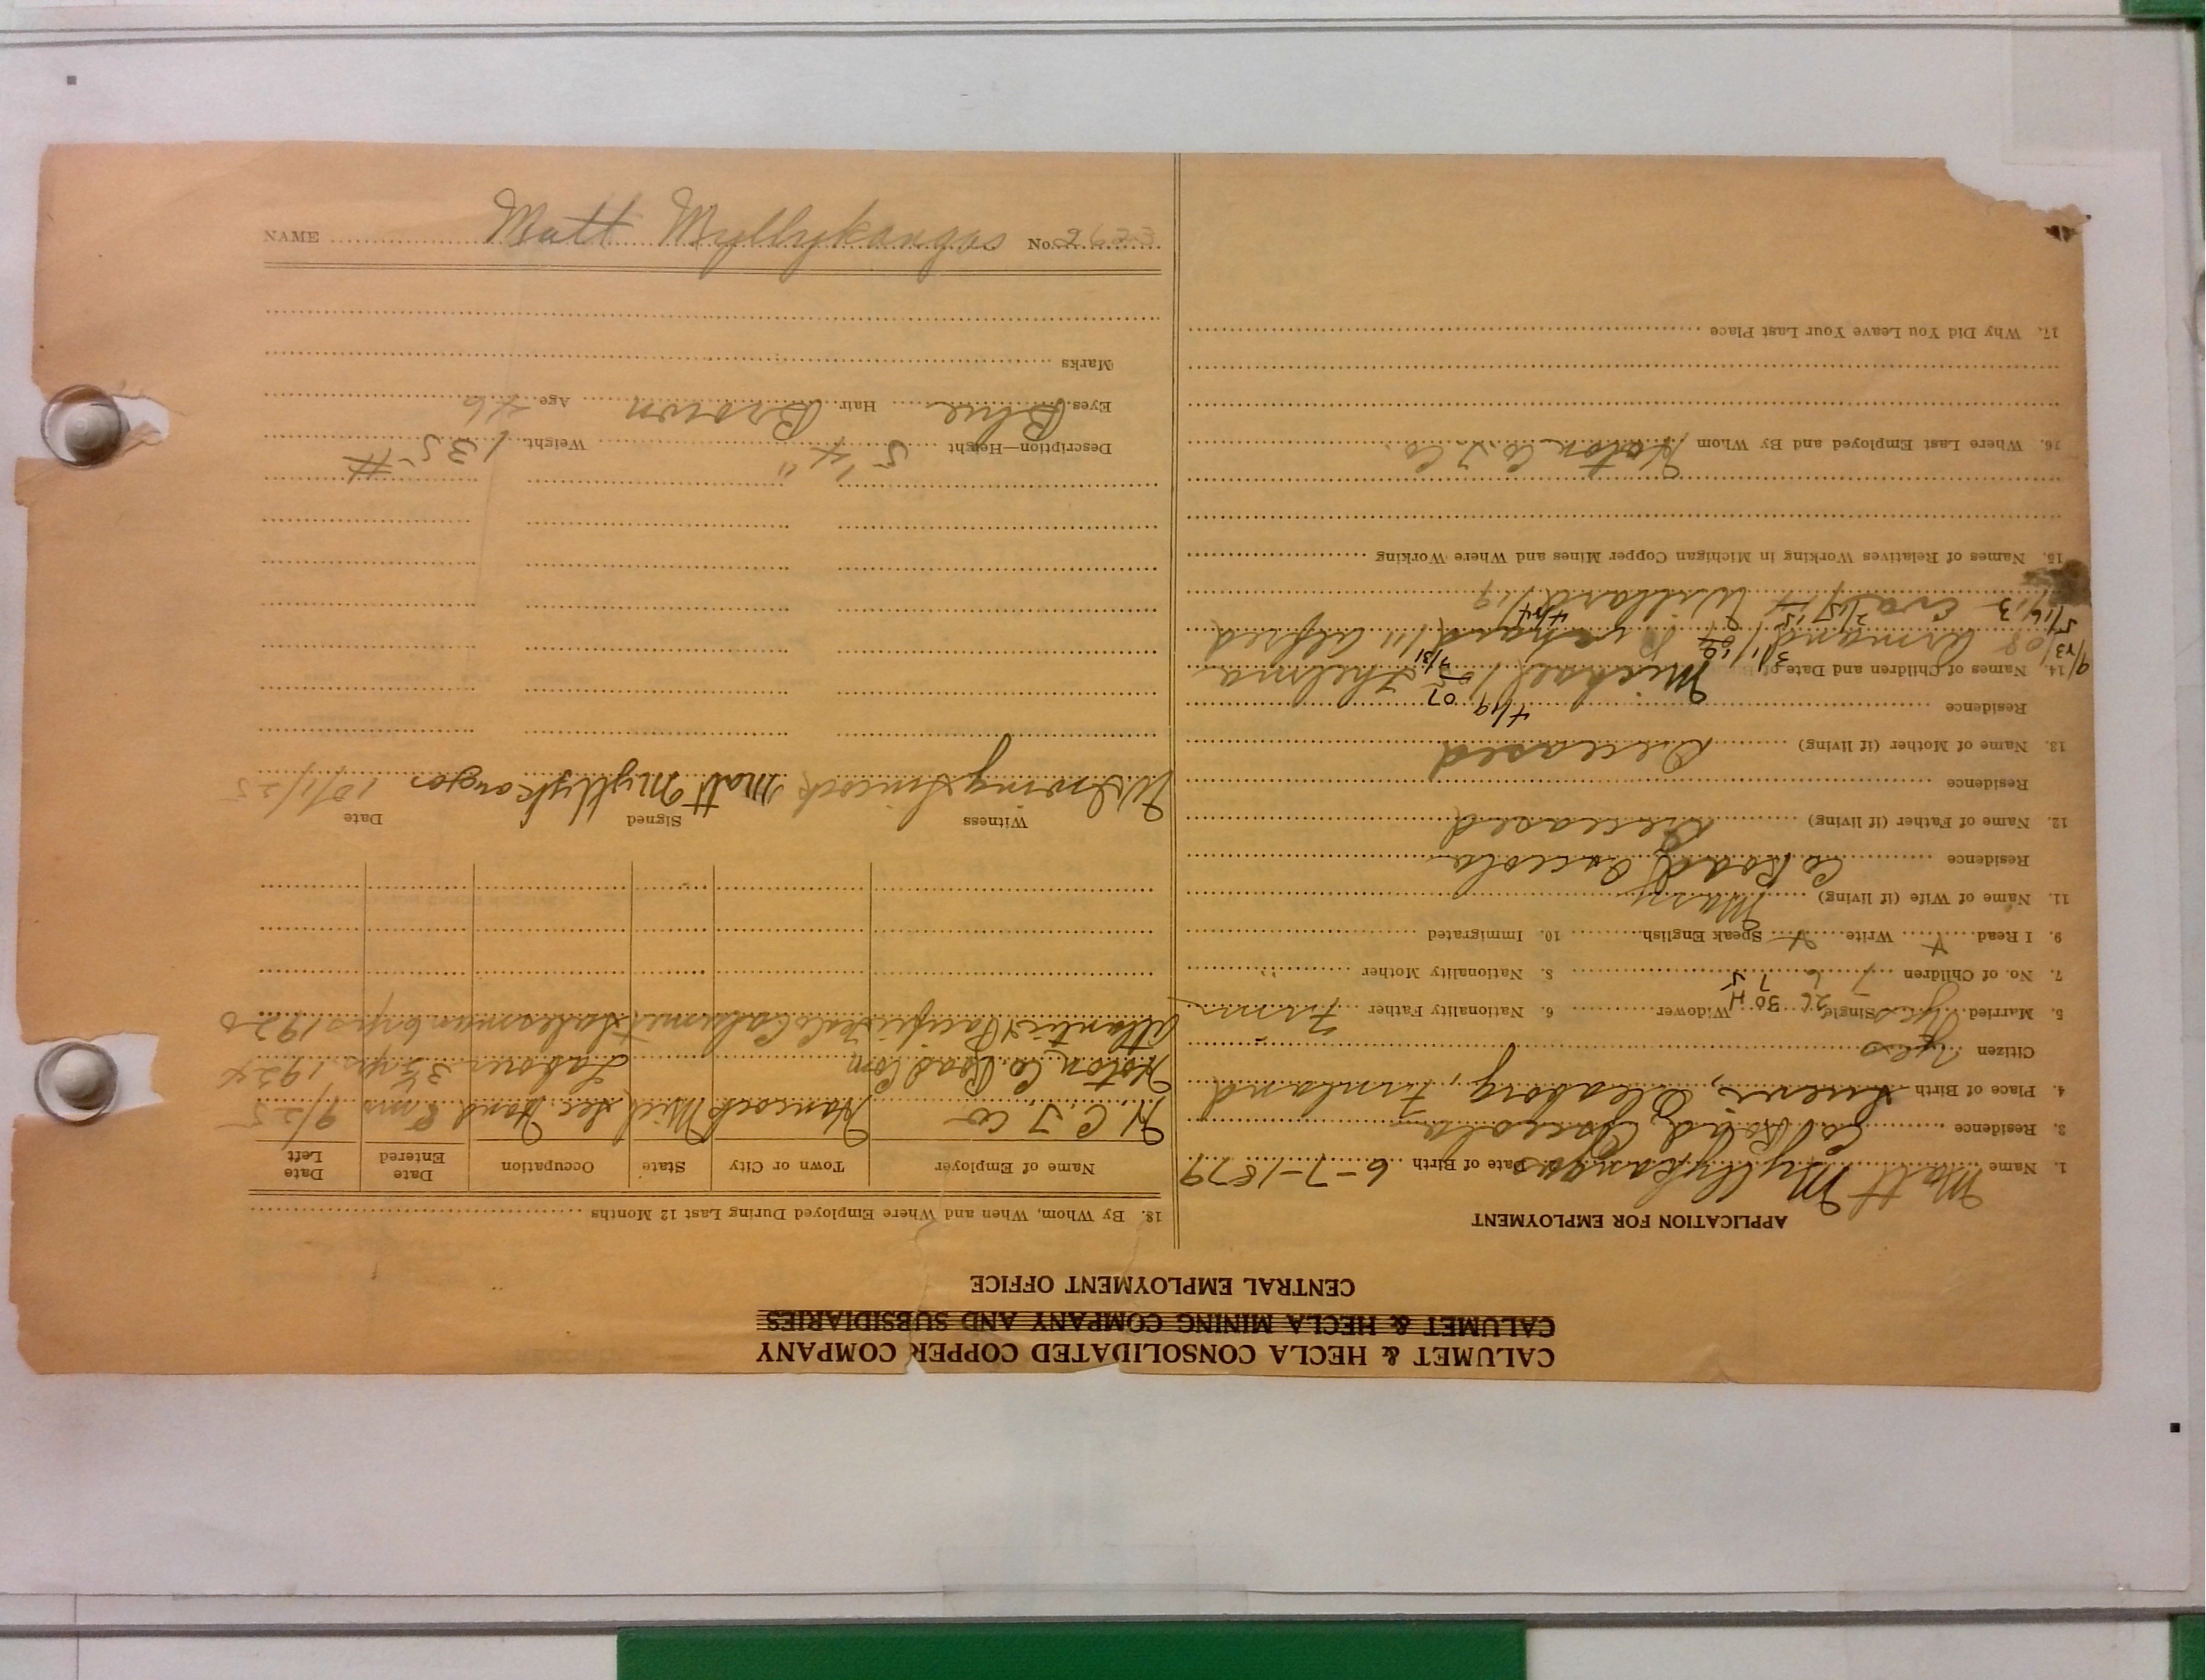 CALUMET & HECLA CONSOLIDATED COPPER COMPANY
CALUMET & HECLA MINING COMPANY AND SUBSIDIARIES
CENTRAL EMPLOYMENT OFFICE
APPLICATION FOR EMPLOYMENT
1. Name Matt Myllykangas Date of Birth 6-7-1879
2. Residence Co Road, Osceola
4. Place of Birth Oleaborg, Finland
Citizen Yes
5. Married Yes Single 26 30 H Widower 6. Nationality Father Finn
7. No. of Children 7 6 7 5 8. Nationality Mother "
9. I Read + Write + Speak English 10. Immigrated
11. Name of Wife (if living) Mary
Residence Co Road Osceola
12. Name of Father (if living) Deceased
Residence
13. Name of Mother (if living) Deceased
Residence
14. Names of Children and Date of Michael Thelma
Armand Alfred
Eva Willard
15. Names of Relatives Working in Michigan Copper Mines and Where Working
16. Where Last Employed and By Whom Hoton Co. T. Co.
17. Why Did You Leave Your Last Place
18. By Whom, When and Where Employed During Last 12 Months
Name of Employer Town or City State Occupation Date Entered Date Left
H. C. T. Co Hancock Mich Sec Hand 8 mo 9/25
Hoton Co. Road Com Laborer 3½ yrs 1924
Atlantic & Pacific Tea Co Calumet Salesman 6 yrs 1920
Witness Signed Date
Matt Myllykangas 10/1/25
Description—Height 5'4" Weight 135 #
Eyes Blue Hair Brown Age 46
Marks
NAME Matt Myllykangas No. 2623